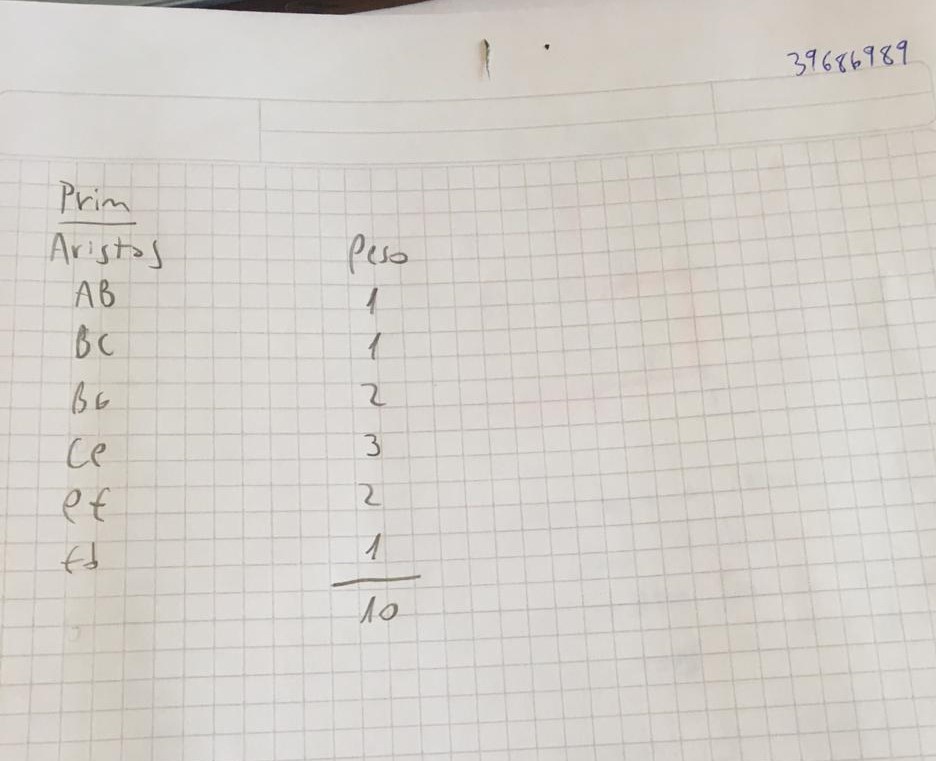 39686989
Prim
Aristas Peso
AB 1
BC 1
BG 2
Ce 3
ef 2
fd 1
10